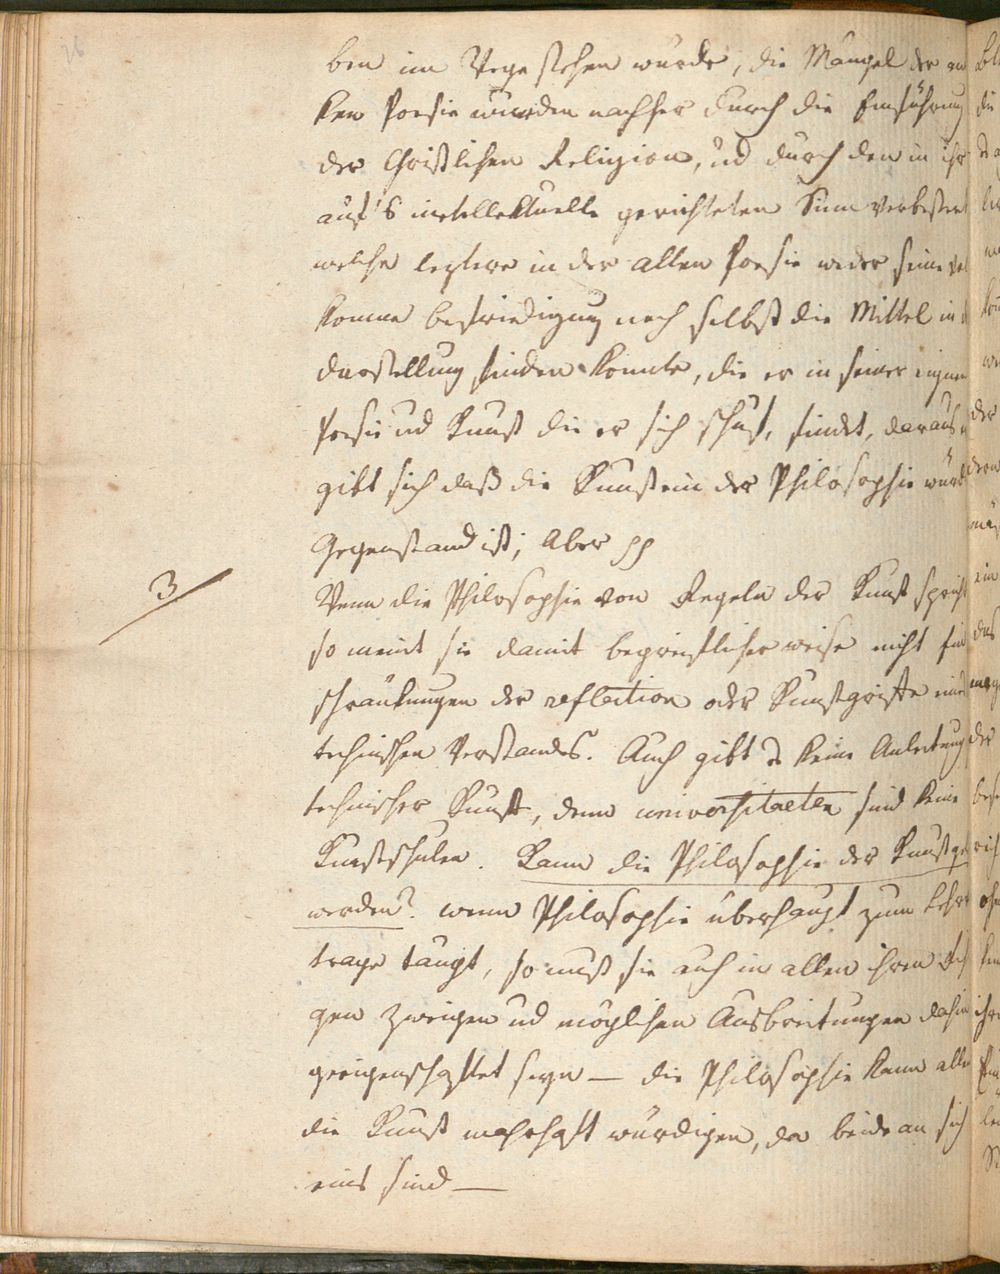 26
ben im Wege stehen würde, die Mängel der an
ken Poesie wurden nachher durch die Einführung
der Christlichen Religion, ud durch den in ihr
auf's intellektuelle gerichteten Sinn verbessert
welcher leztere in der alten Poesie weder seine vol
komne befriedigung noch selbst die Mittel in d
darstellung finden konnte, die er in seiner eignen
Poesie ud Kunst die er sich schuf, findet, daraus
gibt sich daß die Kunst ein der Philosophie würd
Gegenstand ist; Aber pp
3
Wenn die Philosophie von Regeln der Kunst spricht
so meint sie damit begreiflicher weise nicht Ein
schränkungen der reflection oder Kunstgriffe eines
technischen Verstandes. Auch gibt es keine Anleitung
technischer Kunst, denn universitaeten sind keine
Kunstschulen. Kann die Philosophie der Kunst ge
werden? wenn Philosophie überhaupt zum Lehr
trage taugt, so muß sie auch in allen ihren
gen Zweigen ud möglichen Ausbreitungen dahin
geeigenschaftet seyn — die Philosophie kann allein
die Kunst wahrhaft würdigen, da beide an sich
eins sind —